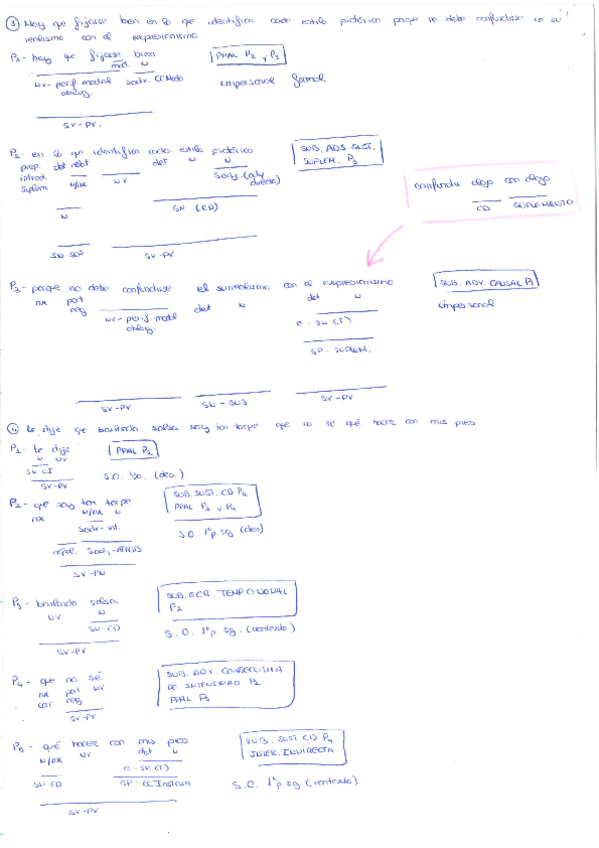 ③ Hay que fijarse bien en lo que identifica cada estilo pictórico porque no debe confundirse el su
rrealismo con el expresionismo
P1 - hay que fijarse bien
PPAL P2 y P3
mod. N
NV - perif. modal oblig.
Sadv. CCModo
impersonal formal
SV-PV.
P2 - en lo que identifica cada estilo pictórico
SUB. ADJ. SUST. SUPLEM. P1
prep. det relat
det N N
introd. suplem
N/nx NV
Sadj (ady directo)
confundir algo con algo
CD SUPLEMENTO
N
SN (CD)
SN-SUS SV-PV
P3 - porque no debe confundirse el surrealismo con el expresionismo
SUB. ADV. CAUSAL P1
nx part neg
NV - perif. modal oblig.
det N
det N
impersonal
e - SN (T)
SP - SUPLEM.
SV-PV SN - SUS SV-PV
④ Le dije que bailando salsa soy tan torpe que no sé qué hacer con mis pies
P1 - Le dije
PPAL P2
N NV
SN CI
S.O. Yo. (des.)
SV-PV
P2 - que soy tan torpe
SUB. SUST. CD P1
PPAL P3 y P4
nx
N
Sadv - int.
S.O. 1ªp.sg (des)
copul. Sadj - ATRIB
SV-PN
P3 - bailando salsa
SUB. TEMPO MODAL
P2
NV N
SN-CD
S.O. 1ªp sg. (contexto)
SV-PV
P4 - que no sé
SUB. ADV. CONSECUTIVA
DE INTENSIDAD P2
PPAL P5
nx part NV
neg
SV-PV
P5 - qué hacer con mis pies
SUB. SUST CD P4
INTER. INDIRECTA
N/nx NV det N
e - SN (T)
SN CD SP - CC Instrum
S.O. 1ªp.sg (contexto)
SV-PV